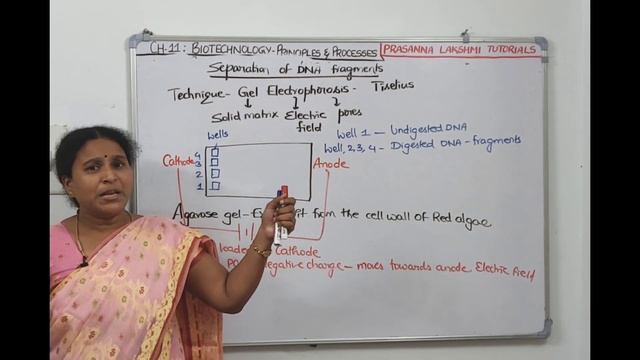 CH-11: BIOTECHNOLOGY-PRINCIPLES & PROCESSES PRASANNA LAKSHMI TUTORIALS
Separation of DNA fragments
Technique - Gel Electrophorosis - Tiselius
Solid matrix Electric field pores
wells
Well 1 - Undigested DNA
Well, 2, 3, 4 - Digested DNA-fragments
Cathode 4 3 2 1 Anode
Agarose gel - it from the cell wall of Red algae
Cathode
negative charge - moves towards anode Electric field